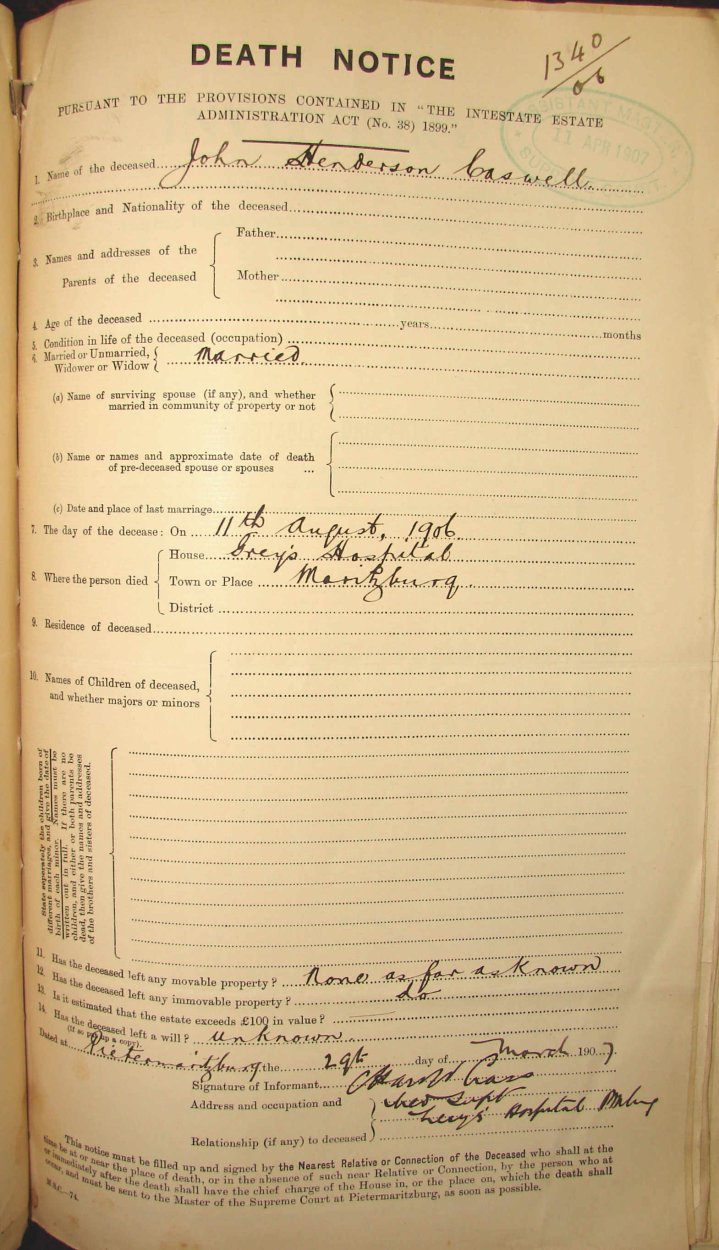 DEATH NOTICE
1340/06
PURSUANT TO THE PROVISIONS CONTAINED IN "THE INTESTATE ESTATE
ADMINISTRATION ACT (No. 38) 1899."
ASSISTANT MASTER
11 APR 1907
1. Name of the deceased John Henderson Caswell
2. Birthplace and Nationality of the deceased
3. Names and addresses of the Parents of the deceased
Father
Mother
4. Age of the deceased years months
5. Condition in life of the deceased (occupation)
6. Married or Unmarried, Widower or Widow Married
(a) Name of surviving spouse (if any), and whether
married in community of property or not
(b) Name or names and approximate date of death
of pre-deceased spouse or spouses ...
(c) Date and place of last marriage
7. The day of the decease: On 11th August, 1906.
8. Where the person died
House Grey's Hospital
Town or Place Maritzburg.
District
9. Residence of deceased
10. Names of Children of deceased,
and whether majors or minors
State separately the children born of
different marriages, and give the date of
birth of each minor. Names must be
written out in full. If there are no
children, and either or both parents be
dead, then give the names and addresses
of the brothers and sisters of deceased.
11. Has the deceased left any movable property? None as far as Known
12. Has the deceased left any immovable property? do
13. Is it estimated that the estate exceeds £100 in value?
14. Has the deceased left a will? unknown
(If so put up a copy).
Dated at Pietermaritzburg the 29th day of March 1907
Signature of Informant
Address and occupation and Med Supt
Grey's Hospital PMburg
Relationship (if any) to deceased
This notice must be filled up and signed by the Nearest Relative or Connection of the Deceased who shall at the
time be at or near the place of death, or in the absence of such near Relative or Connection, by the person who at
or immediately after the death shall have the chief charge of the House in, or the place on, which the death shall
occur, and must be sent to the Master of the Supreme Court at Pietermaritzburg, as soon as possible.